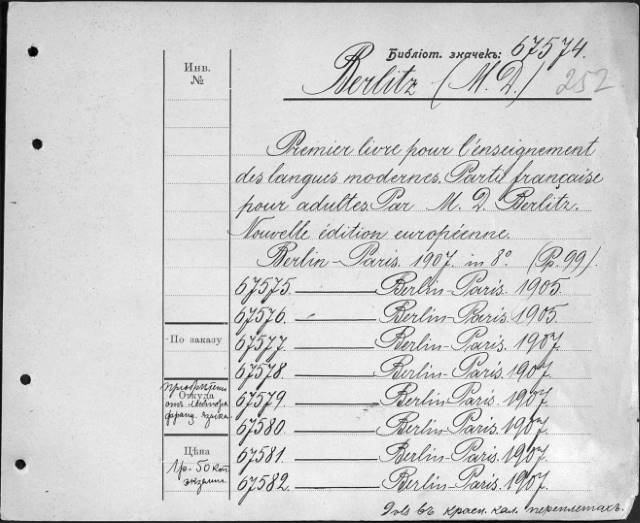 Библіот. значекъ: 67574.
Инв.
№
Berlitz (M. D.) 252
Premier livre pour l'enseignement
des langues modernes. Partie française
pour adultes. Par M. D. Berlitz.
Nouvelle édition européenne.
Berlin-Paris. 1907. in 8°. (Pp. 99).
67575. ——— Berlin-Paris. 1905.
67576. ——— Berlin-Paris. 1905.
По заказу
67577. ——— Berlin-Paris. 1907.
67578. ——— Berlin-Paris. 1907.
Откуда
франц. языка.
67579 ——— Berlin-Paris. 1907.
67580 ——— Berlin-Paris. 1907.
Цѣна
1р.-50 коп.
67581. ——— Berlin-Paris. 1907.
67582. ——— Berlin-Paris. 1907.
въ красн. кал. переплетахъ.